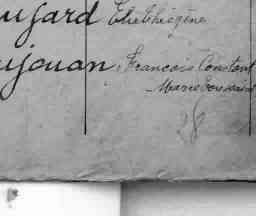 ujard Théthiogène
ujouan, François Constant
Marie Toussaint
28